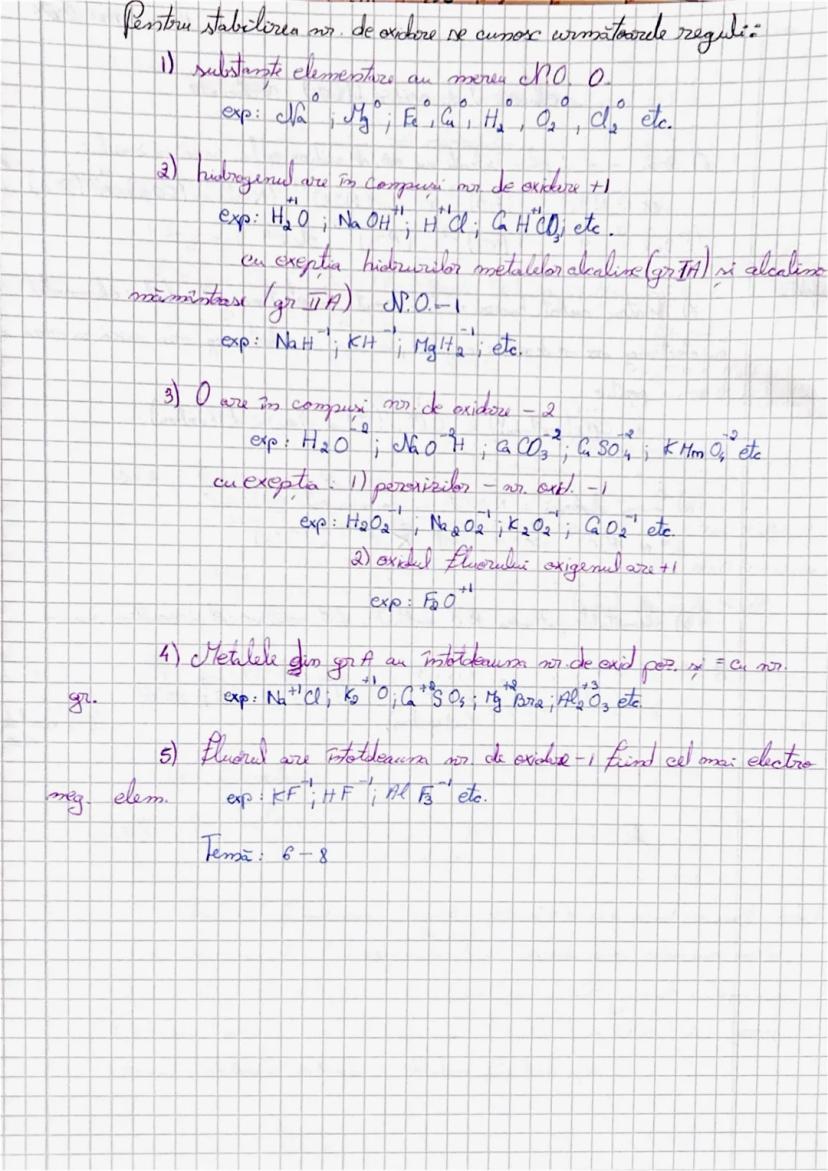 Pentru stabilirea nr. de oxidare se cunosc următoarele reguli:
1) substanțe elementare au mereu NO 0.
exp: Na⁰ ; Mg⁰ ; Fe⁰, Ca⁰, H₂⁰, O₂⁰, Cl₂⁰ etc.
2) hidrogenul are în compuși nr. de oxidare +1
exp: H₂⁺¹O ; NaOH⁺¹; H⁺¹Cl; CaH⁺¹CO₃; etc.
cu exepția hidrurilor metalelor alcaline (gr IA) și alcalino
mămîntase (gr II A) N.O. -1
exp: NaH⁻¹; KH⁻¹; MgH₂⁻¹; etc.
3) O are în compuși nr. de oxidare - 2
exp: H₂O⁻²; NaO⁻²H ; CaCO₃⁻²; CaSO₄⁻² ; KMnO₄⁻² etc
cu exepția : 1) peroxizilor - nr. oxid. -1
exp: H₂O₂⁻¹ ; Na₂O₂⁻¹; K₂O₂⁻¹; CaO₂⁻¹ etc.
2) oxidul fluorului oxigenul are +1
exp: F₂O⁺¹
4) Metalele din gr A au întotdeauna nr. de oxid poz. și = cu nr.
gr. exp: Na⁺¹Cl; K₂⁺¹O; Ca⁺²SO₄; Mg⁺²Br₂; Al₂⁺³O₃ etc
5) fluorul are întotdeauna nr. de oxidare -1 fiind cel mai electro
neg. elem. exp: KF⁻¹; HF⁻¹; AlF₃⁻¹ etc.
Temă: 6-8